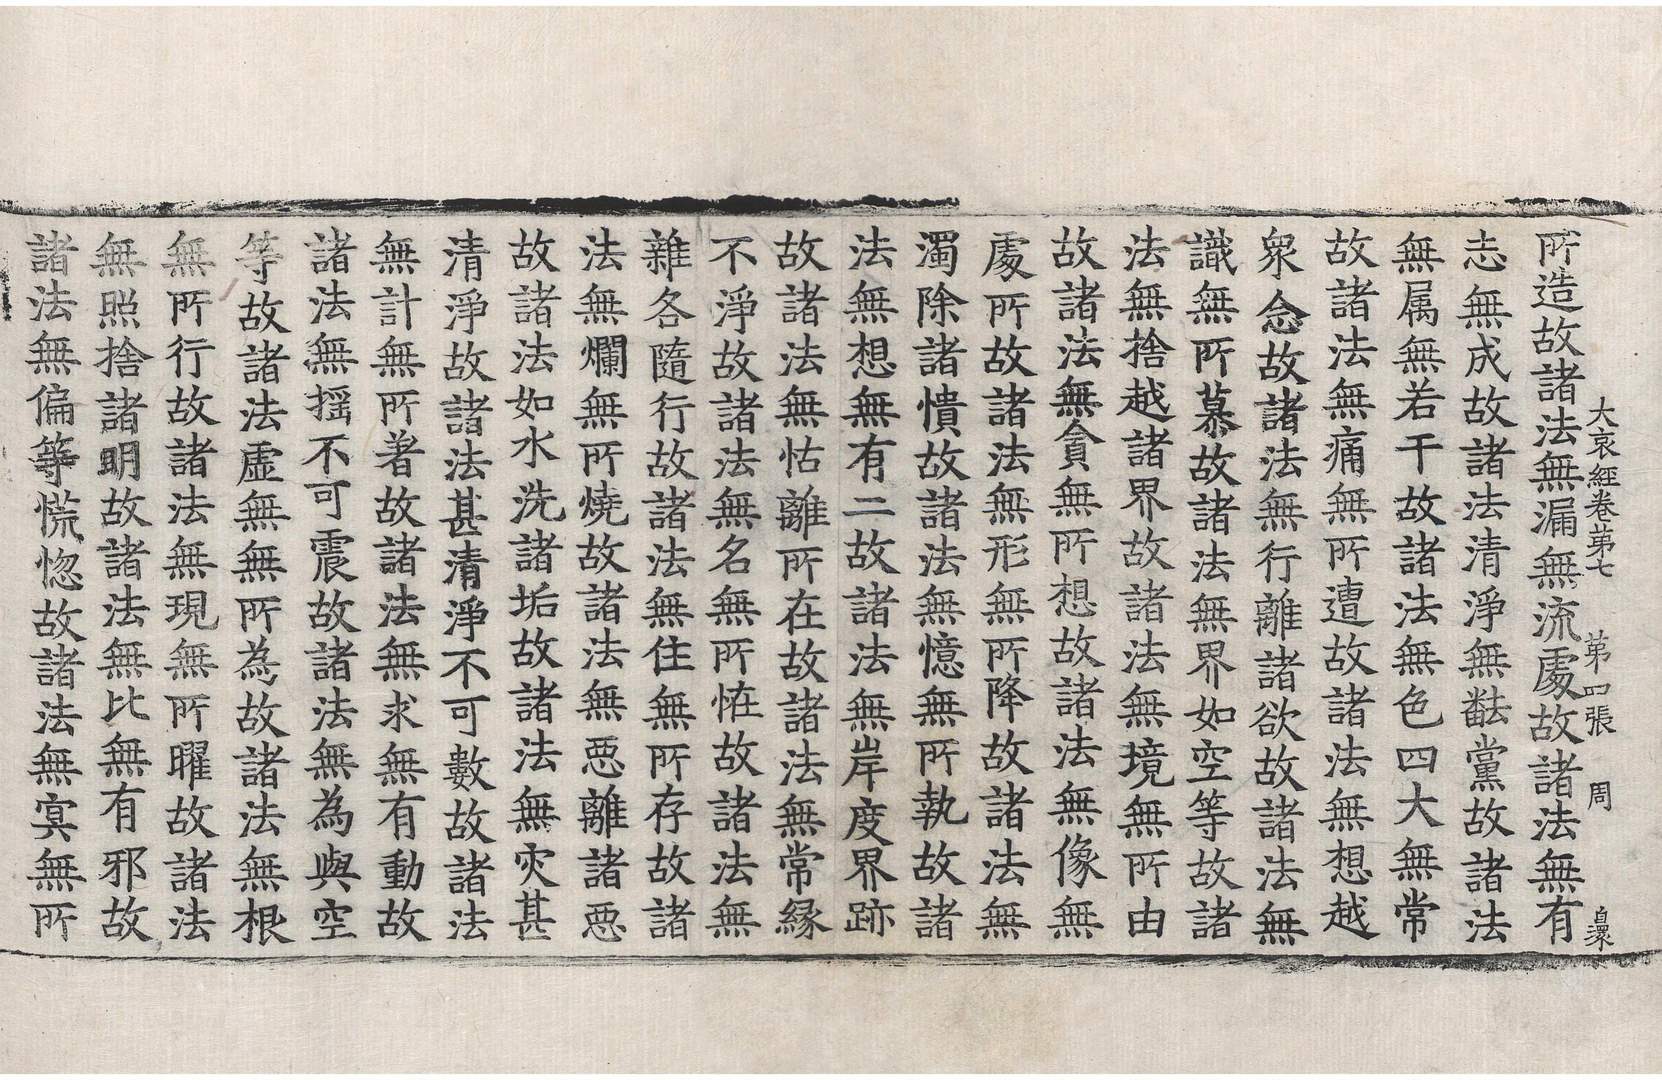 大哀經卷第七　第四張　周　皐
所造故諸法無漏無流處故諸法無有
志無成故諸法清淨無黨故諸法
無属無若干故諸法無色四大無常
故諸法無痛無所遭故諸法無想越
衆念故諸法無行離諸欲故諸法無
識無所慕故諸法無界如空等故諸
法無捨越諸界故諸法無境無所由
故諸法無貪無所想故諸法無像無
處所故諸法無形無所降故諸法無
濁除諸憒故諸法無憶無所執故諸
法無想無有二故諸法無岸度界跡
故諸法無怙離所在故諸法無常緣
不淨故諸法無名無所恠故諸法無
雜各隨行故諸法無住無所存故諸
法無爛無所燒故諸法無惡離諸惡
故諸法如水洗諸垢故諸法無灾甚
清淨故諸法甚清淨不可數故諸法
無計無所著故諸法無求無有動故
諸法無揺不可震故諸法無為與空
等故諸法虛無無所為故諸法無根
無所行故諸法無現無所曜故諸法
無照捨諸明故諸法無比無有邪故
諸法無偏等慌惚故諸法無冥無所